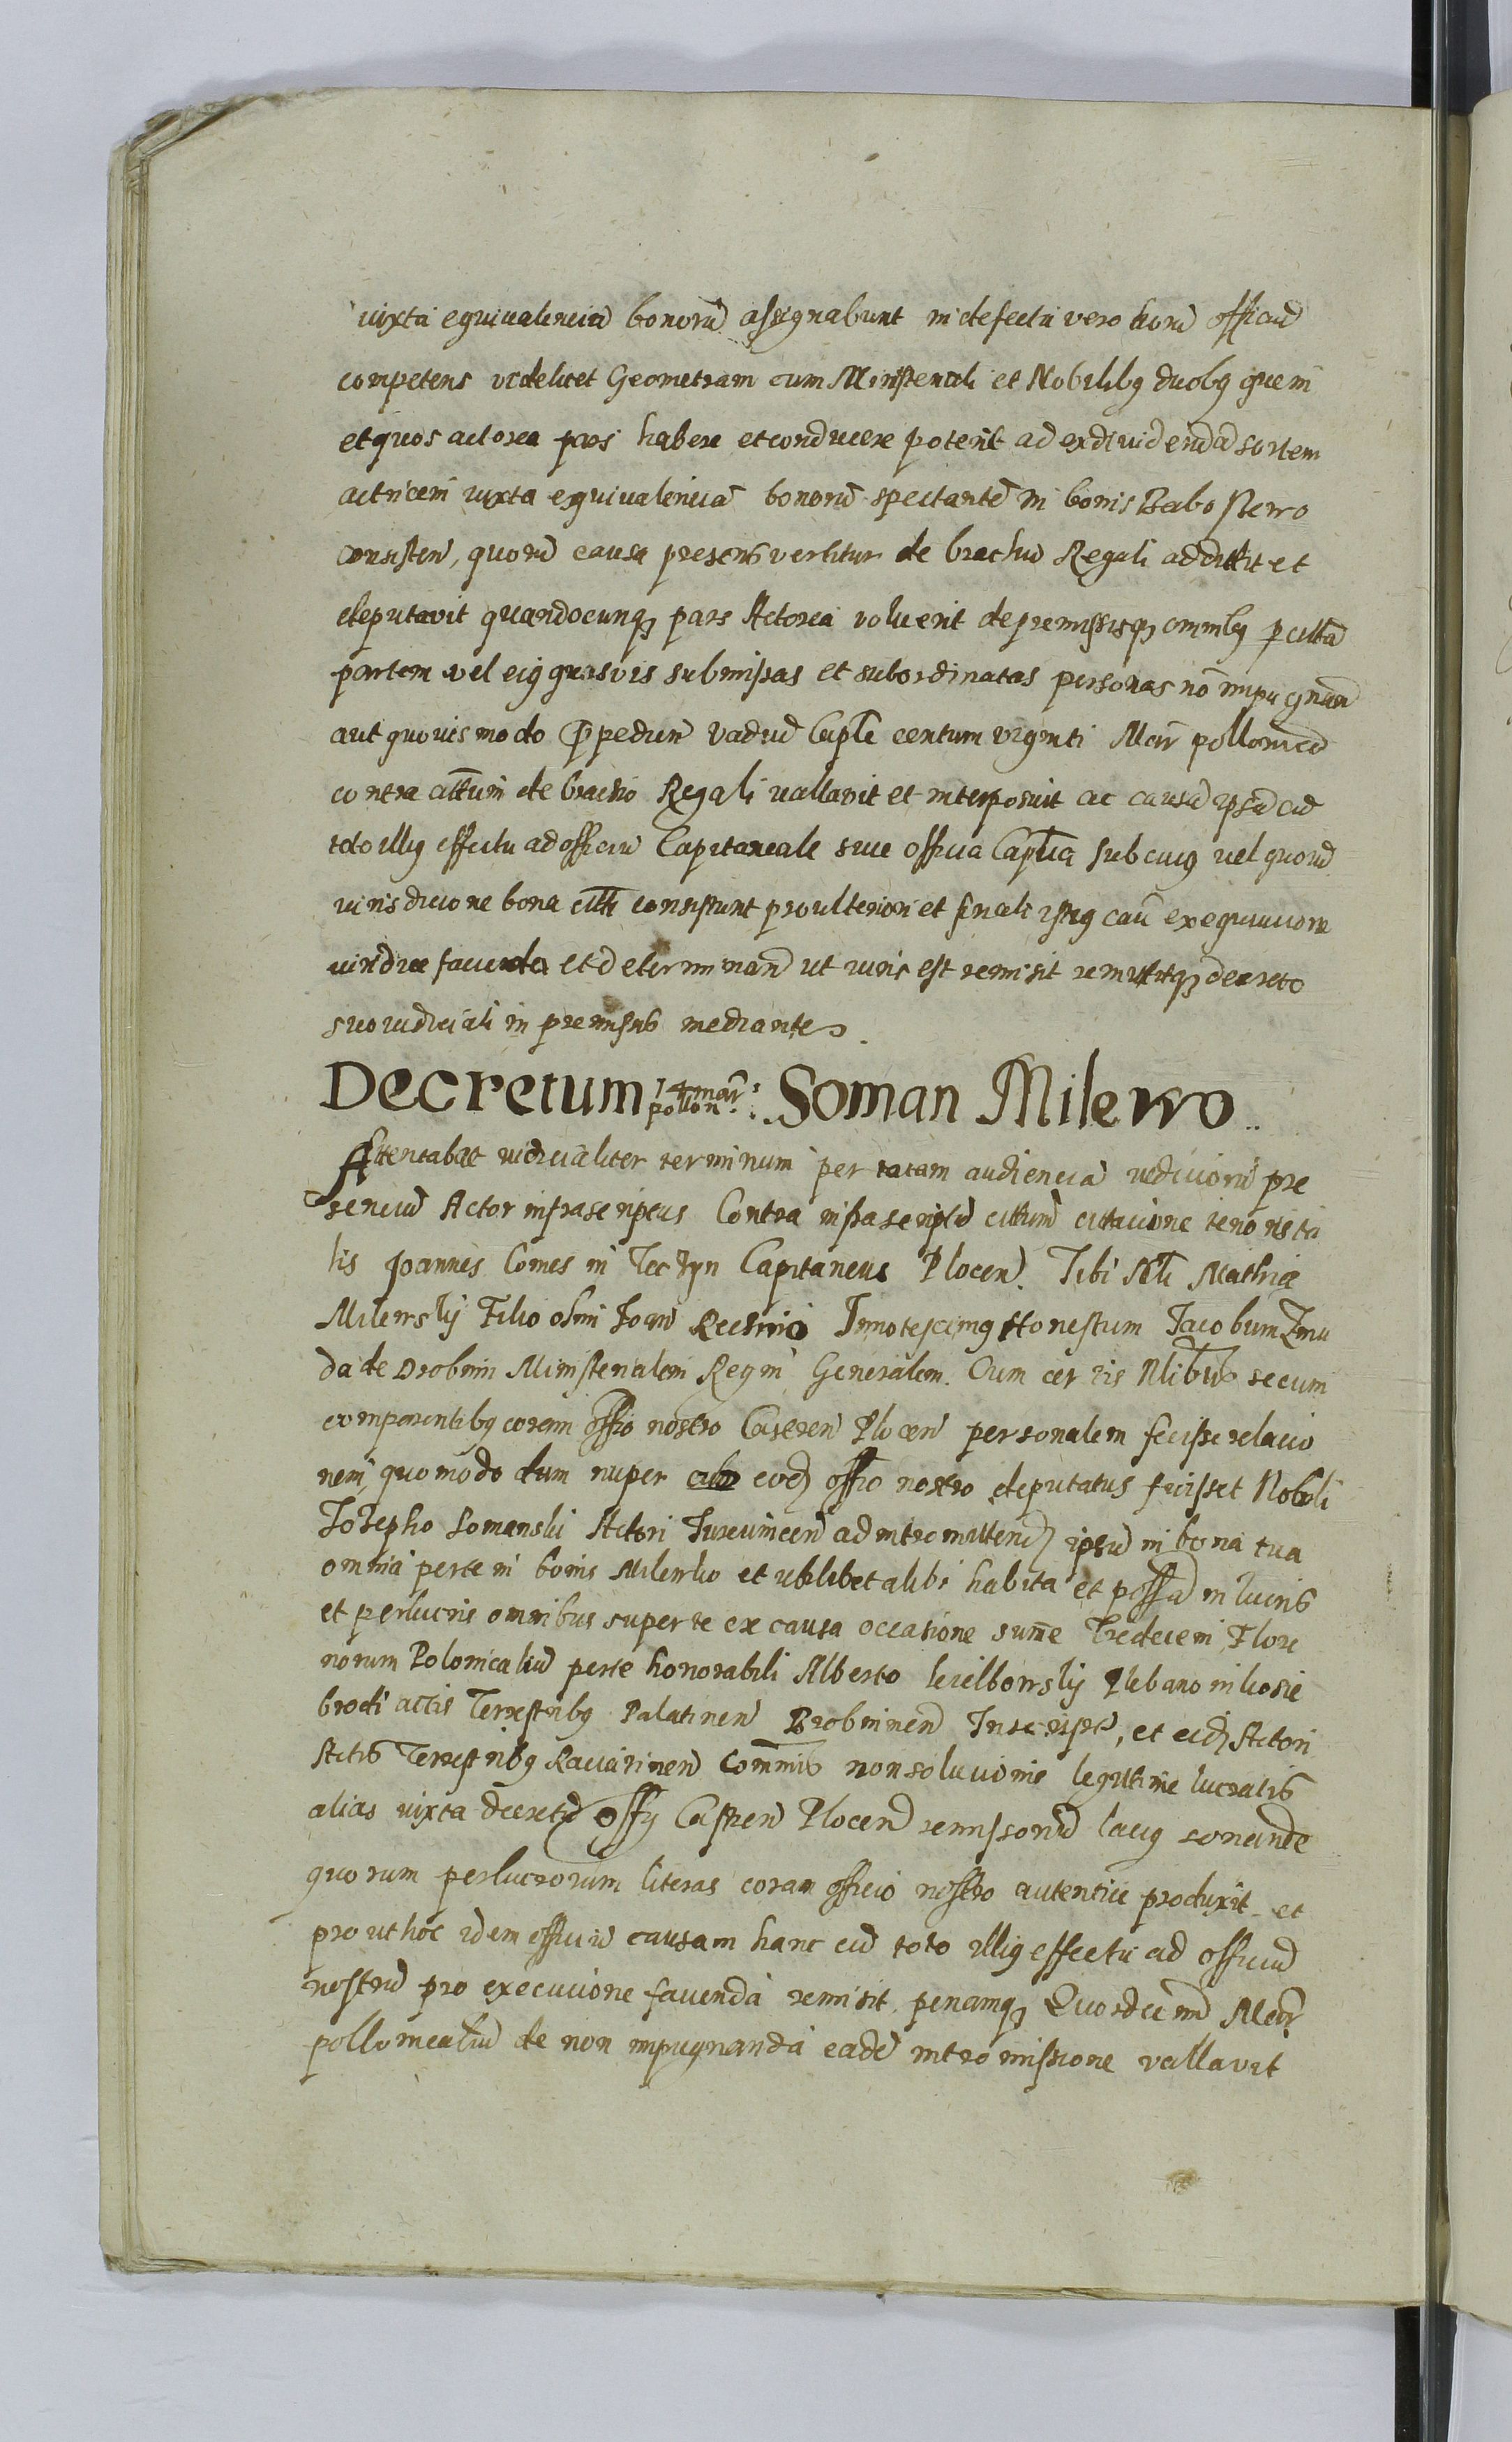 iuxta equivalenciā bonorū assignabunt in defectu vero horū officiū
competens videlicet Geometram cum Ministeriali et Nobilibꝰ duobꝰ quem
et quos actorea pars habere et conducere poterit ad exdividendā sortem
actricem iuxta equivalenciā bonorū spectantē in bonis Babostewo
consisten̄, quorū causa presens vertitur de brachio Regali addidit et
deputavit quandocunqꝫ pars Actorea voluerit de premissisqꝫ omnibꝰ p cittā
partem vel eiꝰ quasvis submissas et subordinatas personas nō impugnan̄
aut quovis modo impedien̄ vadiū Capłe centum viginti Mar̄ pollonicā
contra cittum de brachio Regali vallavit et interposuit ac causā ipsā cū
toto illiꝰ effectu ad officiū Capitaneale sive officia Capłia sub cuiꝰ vel quorū
iurisdicione bona citti consistunt pro ulteriori et finali istiꝰ cau̅ exequucione
iuridice facienda et determinan̄ ut iuris est remisit remittitqꝫ decreto
suo iudiciali in premissis mediante
Decretum 14 mar̄ pollon̄: Soman Milewo
Attentabat iudicialiter terminum per totam audienciā iudiciorū pre
senciū Actor infrascriptus Contra infrascriptū cittum cittacione tenoris ta
lis Joannes Comes in Teczyn Capitaneus Plocen̄. Tibi Nłi Mathiæ
Milewsky Filio olim Joan̄ Innotescimꝰ Honestum Jacobum Zmu
da de Drobnin Ministerialem Regni Generalem. Cum certis Nlibus secum
comparentibꝰ coram offio nostro Castren̄ Plocen̄ personalem fecisse relacio
nem, quomodo dum nuper ab eodꝫ offio nostro deputatus fuisset Nobili
Josepho Somanski Actori Jurevincen̄ ad intromittendꝫ ipsū in bona tua
omnia per te in bonis Milewko et ubilibet alibi habita et possā in lucris
et perlucris omnibus super te ex causa occasione sum̄e Tredecem Flore
norum Polonicaliū per te honorabili Alberto Kielbowsky Plebano in
brodi actis Terrestribꝰ Palatinen̄ Inscripte, et eidꝫ Actori
Actis Terrestribꝰ Raciazinen̄ Commis non solucionis legittime lucratis
alias iuxta decretū offy Castren̄ Plocen̄ remissoriū laciꝰ sonande
quorum perlucrorum literas coram officio nostro autentice produxit et
prout hoc idem officiū causam hanc cū toto illiꝰ effectu ad officiū
nostrū pro execucione facienda remisit, penamqꝫ Quordecim Mar̄
pollonicaliū de non impugnanda eadē intromissione vallavit